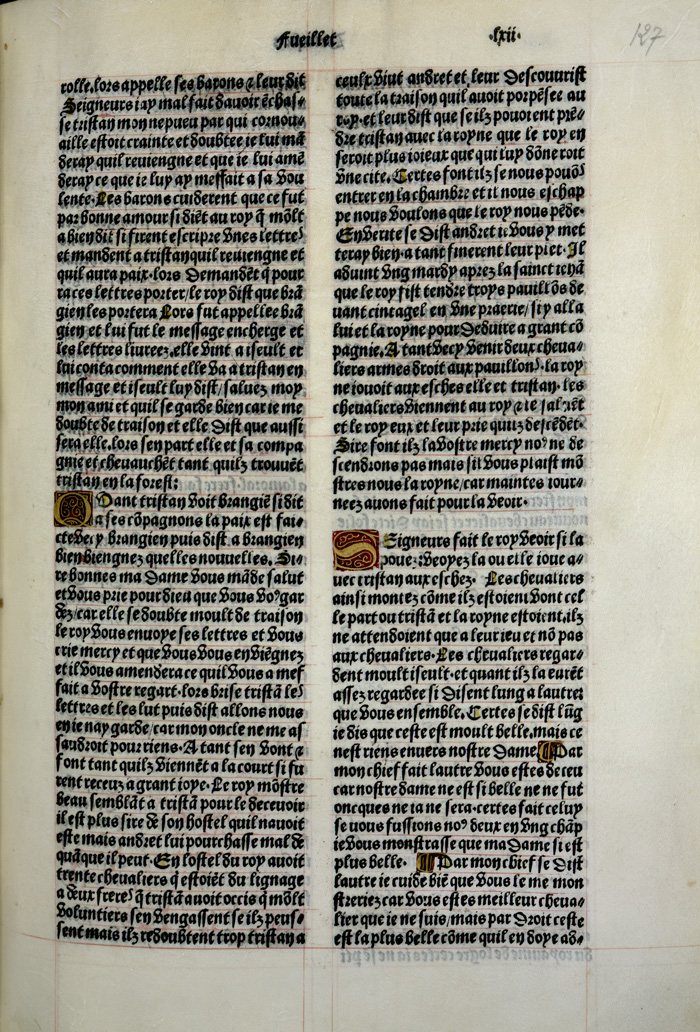 Fueillet .lxii. 127
rolle.lors appelle ses barons ⁊ leur dit
Seigneurs iay mal fait dauoir ẽchas-
se tristan mon nepueu par qui cornou-
aille estoit crainte et doubtee ie lui mã
deray quil reuiengne et que ie lui amẽ
deray ce ie luy ay meffait a sa vou
lente. Les barons cuiderent que ce fut
par bonne amour si diẽt au roy q̃ mõlt
a bien dit si firent escripre vnes lettres
et mandent a tristan quil reuiengne et
quil aura paix. lors demandẽt q̃ pour
ra ces lettres porter/le roy dist que brã
gien les portera Lors fut appellee brã
gien et lui fut le message encherge et
les lettres liurees.elle vint a iseult et
lui conta comment elle va a tristan en
message et iseult luy dist/saluez moy
mon ami et quil se garde bien car ie me
doubte de traison et elle dist que aussi
fera elle.lors sen part elle et sa compa
gnie et cheuauchẽt tant quilz trouuẽt
tristan en la forest:
Quant tristan voit brangiẽ si dit
a ses cõpagnons la paix est fai-
cte vecy brangien puis dist a brangien
bien viengnez quelles nouuelles. Si-
re bonnes ma dame vous mãde salut
et vous prie pour dieu que vous voꝰ gar
dez/car elle se doubte moult de traison
le roy vous enuoye ses lettres et vous
crie mercy et que vous vous en viẽgnez
et il vous amendera ce quil vous a mef
fait a vostre regart.lors brise tristã les
lettres et les lut puis dist allons nous
en ie nay garde/car mon oncle ne me as
saudroit pour riens. A tant sen vont ⁊
font tant quilz viennẽt a la court si fu
rent receuz a grant ioye. Le roy mõstre
beau semblãt a tristã pour le deceuoir
il est plus sire de son hostel quil nauoit
este mais andret lui pourchasse mal de
quãque il peut. En lostel du roy auoit
trente cheualiers q̃ estoiẽt du lignage
a deux freres q̃ tristã auoit occis q̃ mõlt
voluntiers sen vengassent se ilz peus-
sent mais ilz redoubtent trop tristan a
ceulx vint andret et leur descouurist
toute la traison quil auoit porpẽsee au
roy.et leur dist que se ilz pouoient prẽ-
dre tristan auec la royne que le roy en
seroit plus ioieux que qui luy dõneroit
vne cite. Certes font ilz se nous pouõs
entrer en la chambre et il nous eschap
pe nous voulons que le roy nous pẽde.
En verite se dist andret ie vous y met
teray bien.a tant finerent leur plet. Il
aduint vng mardy aprez la sainct iehã
que le roy fist tendre troys pauillõs de
uant cintagel en vne praerie/si y alla
lui et la royne pour deduire a grant cõ
pagnie. A tant vecy venir deux cheua-
liers armes droit aux pauillons. la roy
ne iouoit aux esches elle et tristan. les
cheualiers viennent au roy ⁊ le saluẽt
et le roy eux et leur prie quilz descẽdẽt.
Sire font ilz la vostre mercy noꝰ ne de
scendrons pas mais sil vous plaist mõ
stres nous la royne/car maintes iour-
neez auons fait pour la veoir.
Seigneurs fait le roy veoir si la
poues:veoyez la ou elle ioue a-
uec tristan aux eschez. Les cheualiers
ainsi montez cõme ilz estoient vont cel
le part ou tristã et la royne estoient.ilz
ne attendoient que a leur ieu et nõ pas
aux cheualiers. Les cheualiers regar-
dent moult iseult.et quant ilz la eurẽt
assez regardee si disent lung a lautre:
que vous en semble. Certes se dist lũg
ie dis que ceste est moult belle.mais ce
nest riens enuers nostre dame. ¶ Par
mon chief fait lautre vous estes deceu
car nostre dame ne est si belle ne ne fut
oncques ne ia ne sera.certes fait celuy
se vous fussions noꝰ deux en vng chãp
ie vous monstrasse que ma dame si est
plus belle. ¶ Par mon chief se dist
lautre ie cuide biẽ que vous le me mon
streriez car vous estes meilleur cheua-
lier que ie ne suis/mais par droit ceste
est la plus belle cõme quil en doye ad-